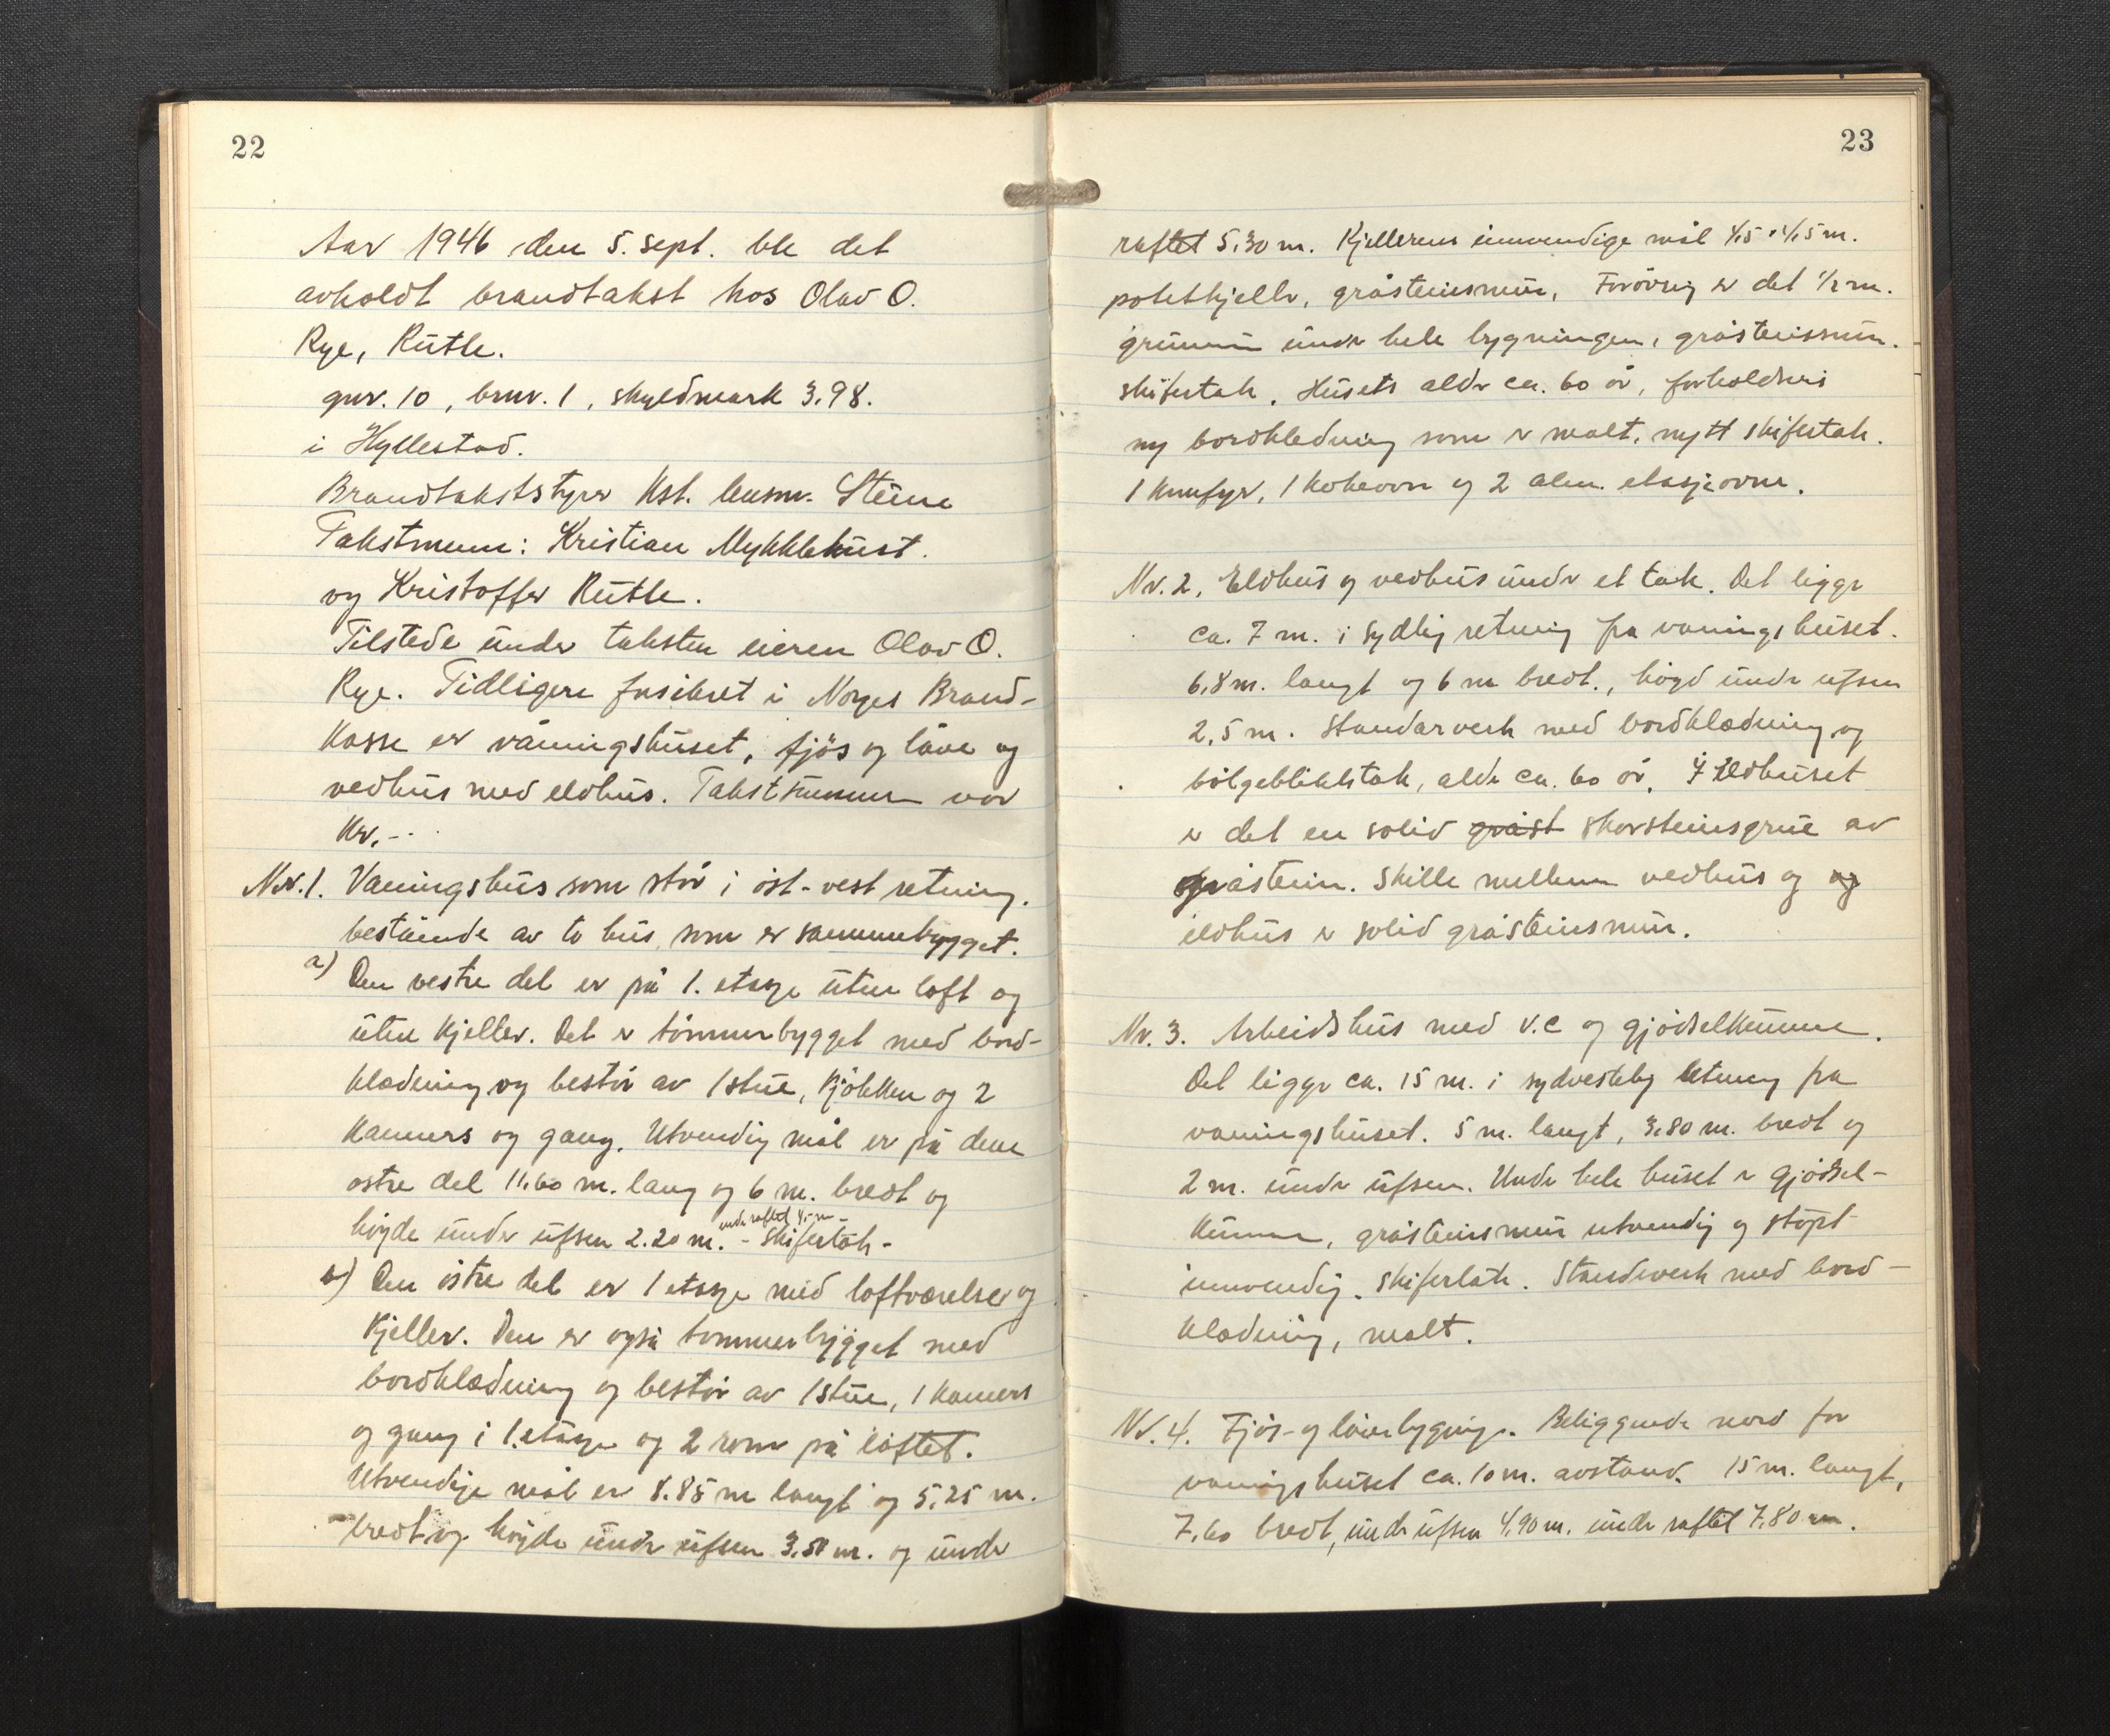 22
Aar 1946 den 5. sept. ble det
avholdt brandtakst hos Olav O.
Rye, Rutle.
gnr. 10, brnr. 1, skyldmark 3.98.
i Hyllestad.
Brandtakststyrer Kst. lensm. Steine
Takstmenn: Kristian Myklebust.
og Kristoffer Rutle.
Tilstede under taksten eieren Olav O.
Rye. Tidligere forsikret i Norges Brand-
kasse er våningshuset, fjös og låve og
vedhus med eldhus. Takstsummen var
Kr. -
Nr. 1. Vaningshus som står i öst-vest retning.
bestående av to hus som er sammenbygget.
a) Den vestre del er på 1. etasje uten loft og
uten kjeller. Det er tömmerbygget med bord-
klædning og består av 1 stue, kjökken og 2
kammers og gang. Utvendig mål er på denne
østre del 11.60 m. lang og 6 m. bredt og
under raftet 4,- m -
höyde under ufsen 2.20 m. - Skifertak -
b) Den östre del er 1 etasje med loftværelse og
kjeller. Den er også tömmerbygget med
bordklædning og består av 1 stue, 1 kamers
og gang i 1. etasje og 2 rom på loftet.
Utvendige mål er 8.85 m langt og 5,25 m.
bredt og höyde under ufsen 3,50 m. og under
23
raftet 5,30 m. Kjellerens innvendige mål 4,5 · 4,5 m.
potetkjeller, gråsteinsmur. Forövrig er det 1/2 m.
grunnmur under hele bygningen, gråsteinsmur.
skifertak. Husets alder ca. 60 år, forholdsvis
ny bordkledning som er malt, nytt skifertak.
1 komfyr, 1 kokeovn og 2 alm. etasjeovne.
Nr. 2. Eldhus og vedhus under et tak. Det ligger
ca. 7 m. i sydlig retning fra vaningshuset.
6,8 m. langt og 6 m bredt., höyd under ufsen
2,5 m. Standarverk med bordklædning og
bölgeblikktak, alder ca. 60 år. I Eldhuset
er det en solid gråst skorsteinsgrue av
gråstein. Skille mellem vedhus og og
eldhus er solid gråsteinsmur.
Nr. 3. Arbeidshus med v.c og gjödselkumme.
Det ligger ca. 15 m. i sydvestlig retning fra
vaningshuset. 5 m. langt, 3,80 m. bredt og
2 m. under ufsen. Under hele huset er gjödsel-
kumme, gråsteinsmur utvendig og stöpt
innvendig. Skifertak. Standverk med bord-
klædning, malt.
Nr. 4. Fjös- og låvebygning. Beliggende nord for
vaningshuset ca. 10 m. avstand. 15 m. langt,
7,60 bredt, under ufsen 4,90 m. under raftet 7,80 m.